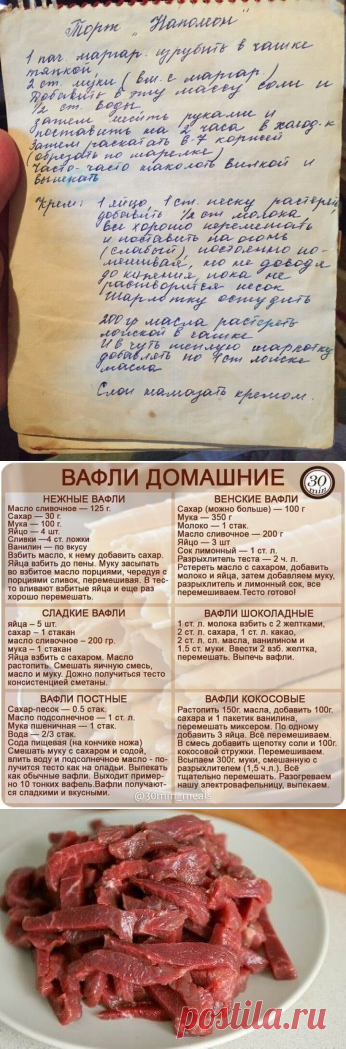 Торт „Наполеон"
1 пач. маргар. изрубить в чашке
тяпкой,
2 ст. муки (вм. с маргар.)
Добавить в эту массу соли и
1/2 ст. воды.
затем месить руками и
поставить на 2 часа в холод-к
Затем раскатать 6-7 коржей
(обрезать по тарелке)
Часто-часто наколоть вилкой и
выпекать
Крем: 1 яйцо, 1 ст. песку растереть,
добавить 1/2 ст молока,
все хорошо перемешать
и поставить на огонь
(слабый), постоянно по-
мешивая, но не доводя
до кипения, пока не
растворится песок
Шарлотку остудить
200 гр масла растереть
ложкой в чашке
И в чуть теплую шарлотку
добавлять по 1 ст ложке
масла
Слои намазать кремом.
ВАФЛИ ДОМАШНИЕ
30
min
НЕЖНЫЕ ВАФЛИ
Масло сливочное — 125 г.
Сахар — 30 г.
Мука — 100 г.
Яйцо — 4 шт.
Сливки —4 ст. ложки
Ванилин — по вкусу
Взбить масло, к нему добавить сахар.
Яйца взбить до пены. Муку засыпать
во взбитое масло порциями, чередуя с
порциями сливок, перемешивая. В тес-
то вливают взбитые яйца и еще раз
хорошо перемешать.
ВЕНСКИЕ ВАФЛИ
Сахар (можно больше) — 100 г
Мука — 350 г
Молоко — 1 стак.
Масло сливочное — 200 г
Яйцо — 3 шт
Сок лимонный — 1 ст. л.
Разрыхлитель теста — 2 ч. л.
Рстереть масло с сахаром, добавить
молоко и яйца, затем добавляем муку,
разрыхлитель и лимонный сок, все
перемешиваем.Тесто готово!
СЛАДКИЕ ВАФЛИ
яйца – 5 шт.
сахар – 1 стакан
масло сливочное – 200 гр.
мука – 1 стакан
Яйца взбить с сахаром. Масло
растопить. Смешать яичную смесь,
масло и муку. Дожно получиться тесто
консистенцией сметаны.
ВАФЛИ ШОКОЛАДНЫЕ
1 ст. л. молока взбить с 2 желтками,
2 ст. л. сахара, 1 ст.л. какао,
2 ст. л. сл. масла, ванилином и
1.5 ст. муки. Ввести 2 взб. желтка,
перемешать. Выпечь вафли.
ВАФЛИ ПОСТНЫЕ
Сахар-песок — 0.5 стак.
Масло подсолнечное — 1 ст. л.
Мука пшеничная — 1 стак.
Вода — 2/3 стак.
Сода пищевая (на кончике ножа)
Смешать муку с сахаром и содой,
влить воду и подсолнечное масло - по-
лучится тесто как на оладьи. Выпекать
как обычные вафли. Выходит пример-
но 10 тонких вафель.Вафли получают-
ся сладкими и вкусными.
ВАФЛИ КОКОСОВЫЕ
Растопить 150г. масла, добавить 100г.
сахара и 1 пакетик ванилина,
перемешать миксером. По одному
добавить 3 яйца. Всё перемешиваем.
В смесь добавить щепотку соли и 100г.
кокосовой стружки. Перемешиваем.
Всыпаем 300г. муки, смешанную с
разрыхлителем (1,5 ч.л.). Всё
тщательно перемешать. Разогреваем
нашу электровафельницу, выпекаем.
@30min_meals
postila.ru